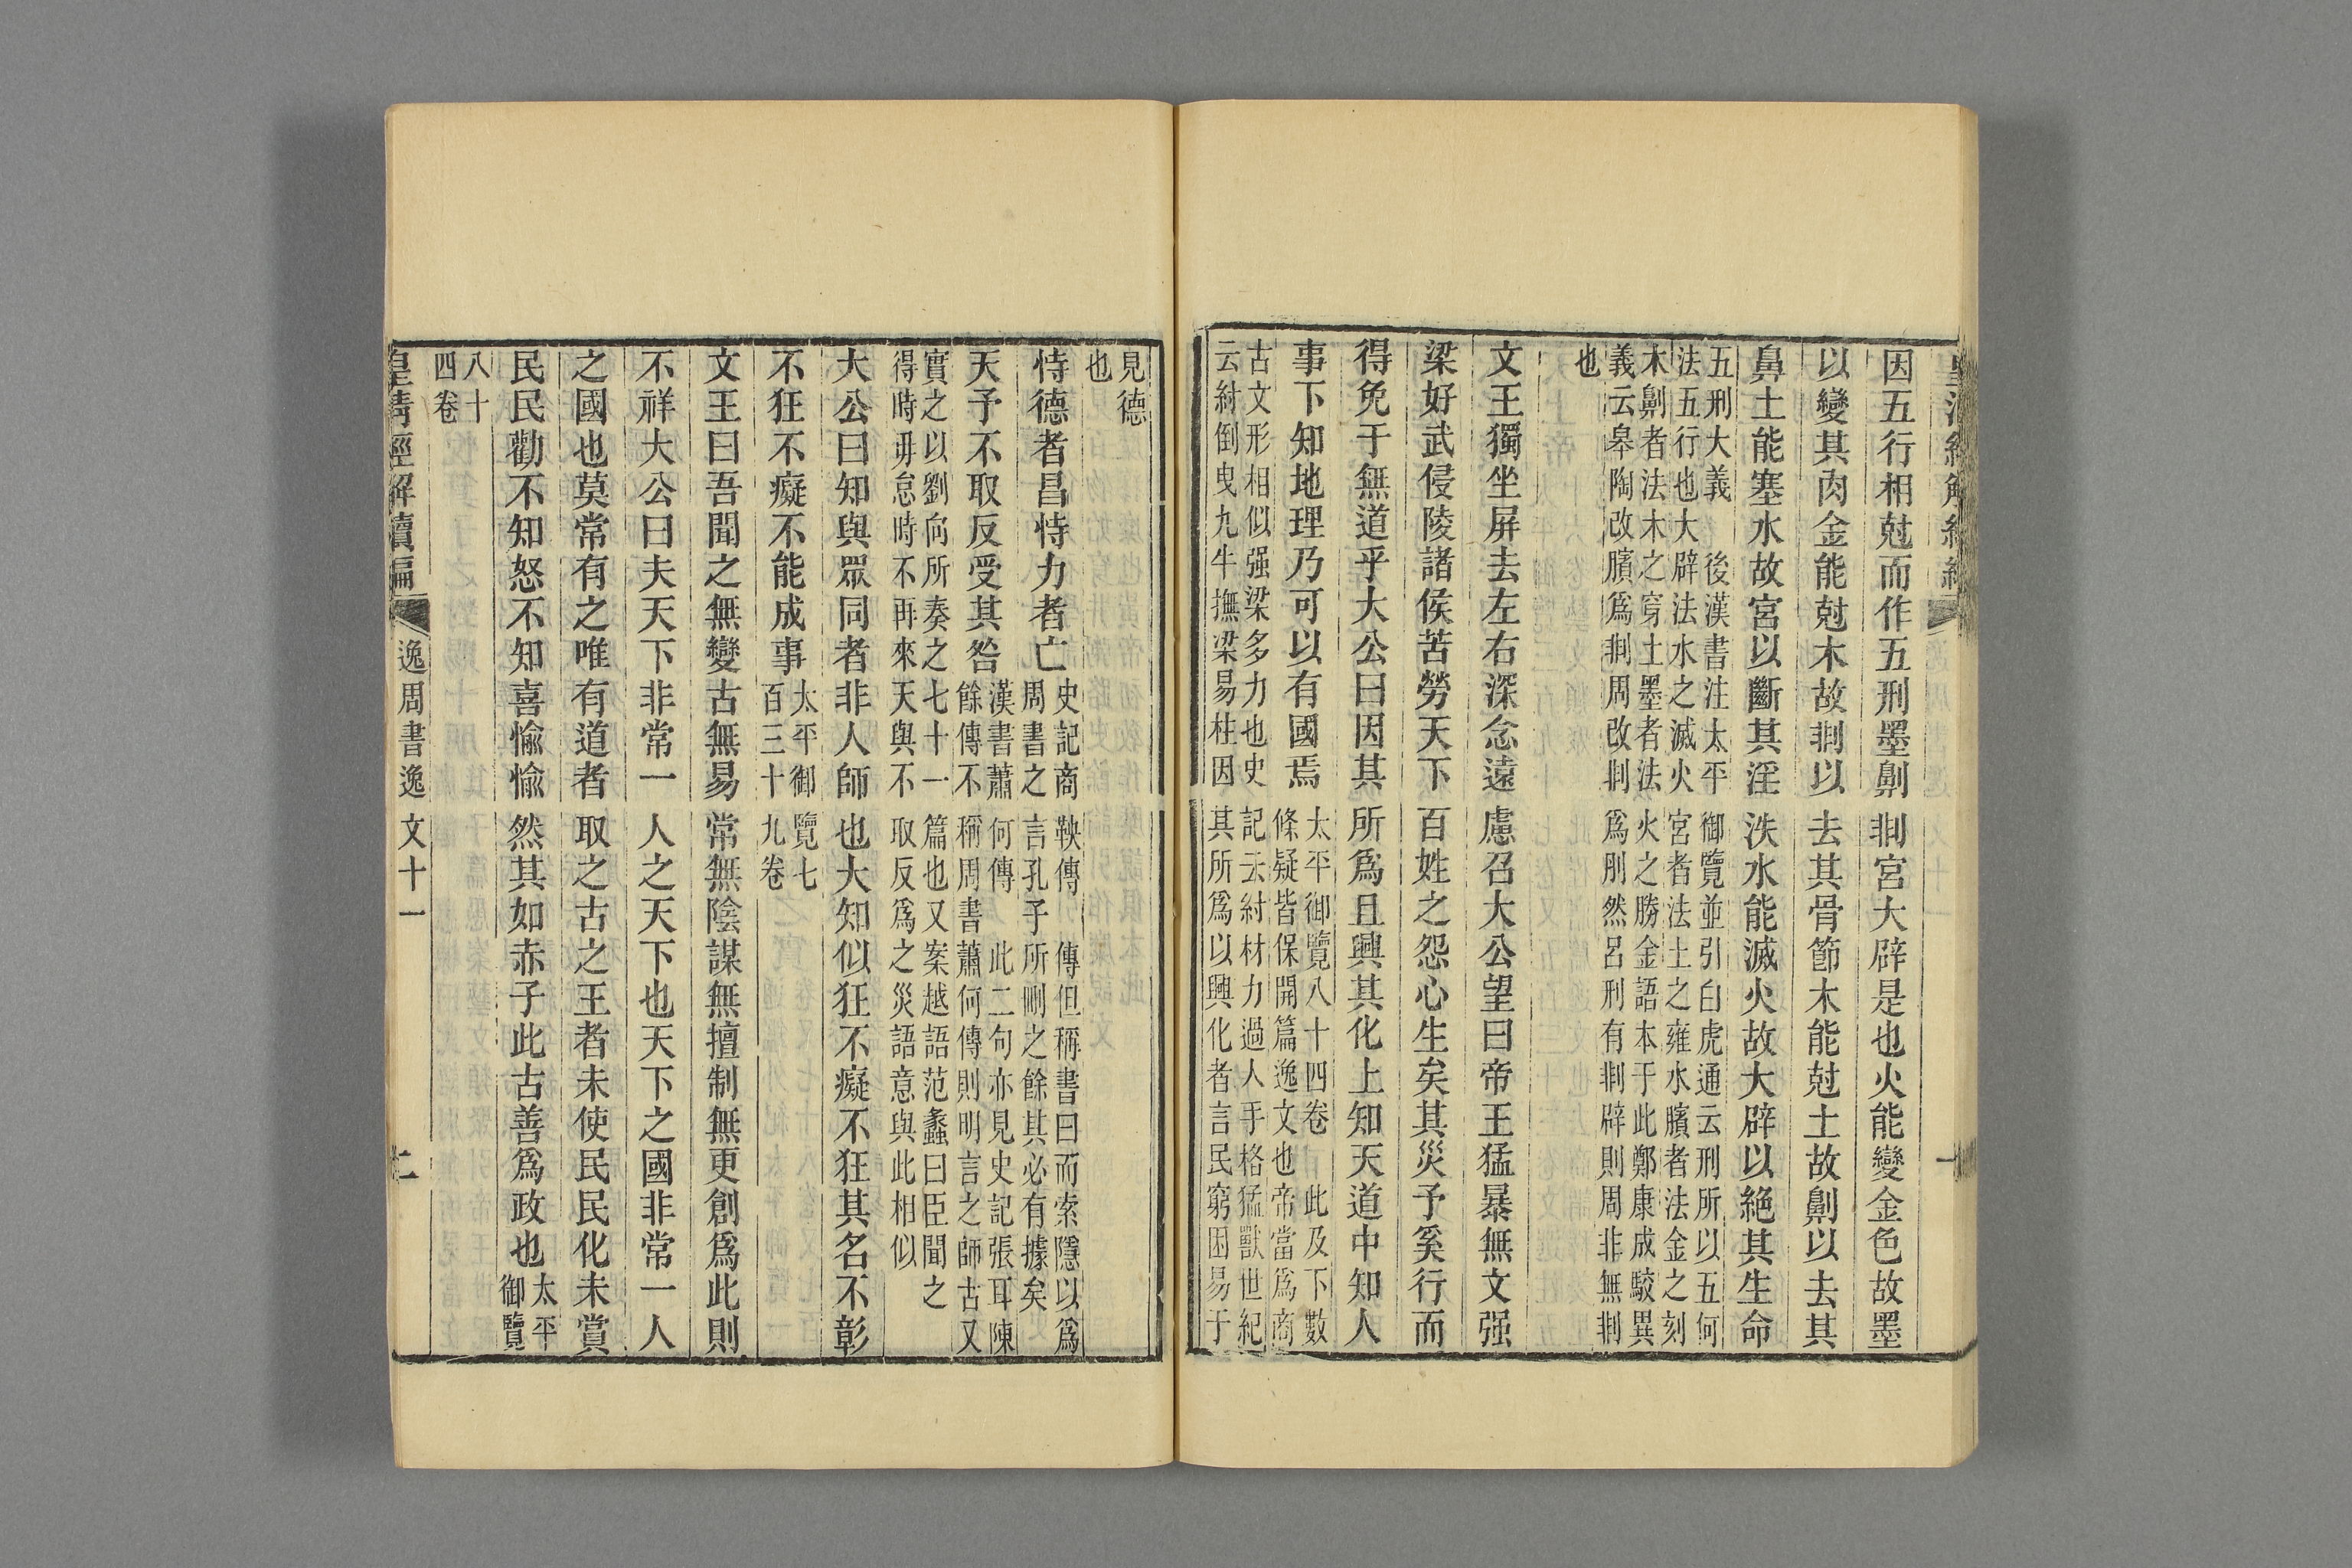 因五行相尅而作五刑墨劓剕宮大辟是也火能變金色故墨
以變其肉金能尅木故剕以去其骨節木能尅土故劓以去其
鼻土能塞水故宮以斷其淫泆水能滅火故大辟以絕其生命
五刑大義　後漢書注太平御覽並引白虎通云刑所以五何
法五行也大辟法水之滅火宮者法土之雍水臏者法金之刻
木劓者法木之穿土墨者法火之勝金語本于此鄭康成駮異
義云皋陶改臏爲剕周改剕爲刖然呂刑有剕辟則周非無剕
也
文王獨坐屏去左右深念遠慮召大公望曰帝王猛暴無文强
梁好武侵陵諸侯苦勞天下百姓之怨心生矣其災予奚行而
得免于無道乎大公曰因其所爲且興其化上知天道中知人
事下知地理乃可以有國焉
太平御覽八十四卷　此及下數
條疑皆保開篇逸文也帝當爲商
古文形相似强梁多力也史記云紂材力過人手格猛獸世紀
云紂倒曳九牛撫梁易柱因其所爲以興化者言民窮困易于
見德
也
恃德者昌恃力者亡
史記商鞅傳　傳但稱書曰而索隱以爲
周書之言孔子所刪之餘其必有據矣
天予不取反受其咎
漢書蕭何傳　此二句亦見史記張耳陳
餘傳不稱周書蕭何傳則明言之師古又
實之以劉向所奏之七十一篇也又案越語范蠡曰臣聞之
得時毋怠時不再來天與不取反爲之災語意與此相似
大公曰知與眾同者非人師也大知似狂不癡不狂其名不彰
不狂不癡不能成事
太平御覽七
百三十九卷
文王曰吾聞之無變古無易常無陰謀無擅制無更創爲此則
不祥大公曰夫天下非常一人之天下也天下之國非常一人
之國也莫常有之唯有道者取之古之王者未使民民化未賞
民民勸不知怒不知喜愉愉然其如赤子此古善爲政也
太平
御覽
八十
四卷
皇清經解續編
逸周書逸文十一
二